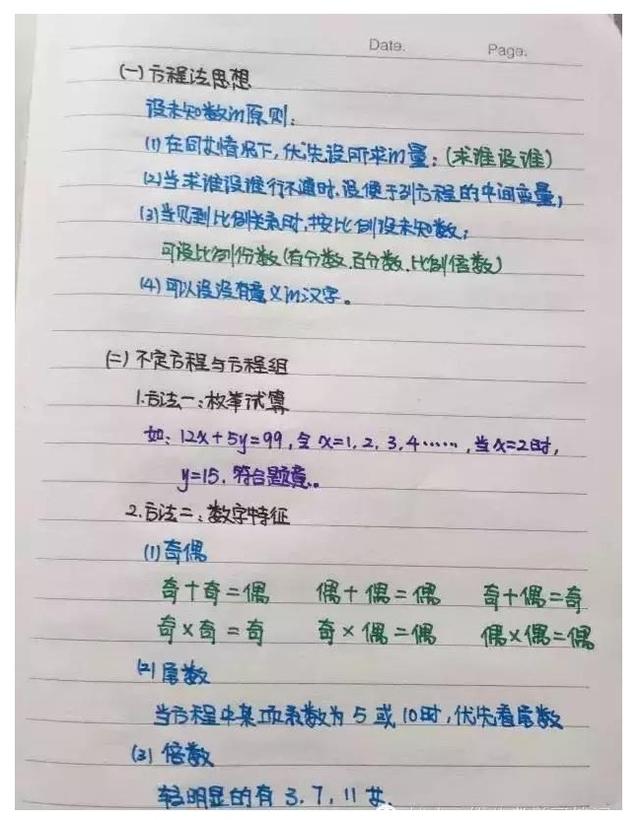 Date.
Page.
(一) 方程法思想
设未知数的原则：
(1) 在同等情况下，优先设所求的量；(求谁设谁)
(2) 当求谁设谁行不通时，设便于列方程的中间变量；
(3) 当见到比例关系时，按比例设未知数；
可设比例份数(有分数、百分数、比例倍数)
(4) 可以设没有意义的汉字。
(二) 不定方程与方程组
1.方法一：枚举试算
如：12x+5y=99，令x=1，2，3，4……，当x=2时，
y=15，符合题意。
2.方法二：数字特征
(1) 奇偶
奇+奇=偶 偶+偶=偶 奇+偶=奇
奇×奇=奇 奇×偶=偶 偶×偶=偶
(2) 尾数
当方程中某项系数为5或10时，优先看尾数
(3) 倍数
较明显的有 3，7，11 等